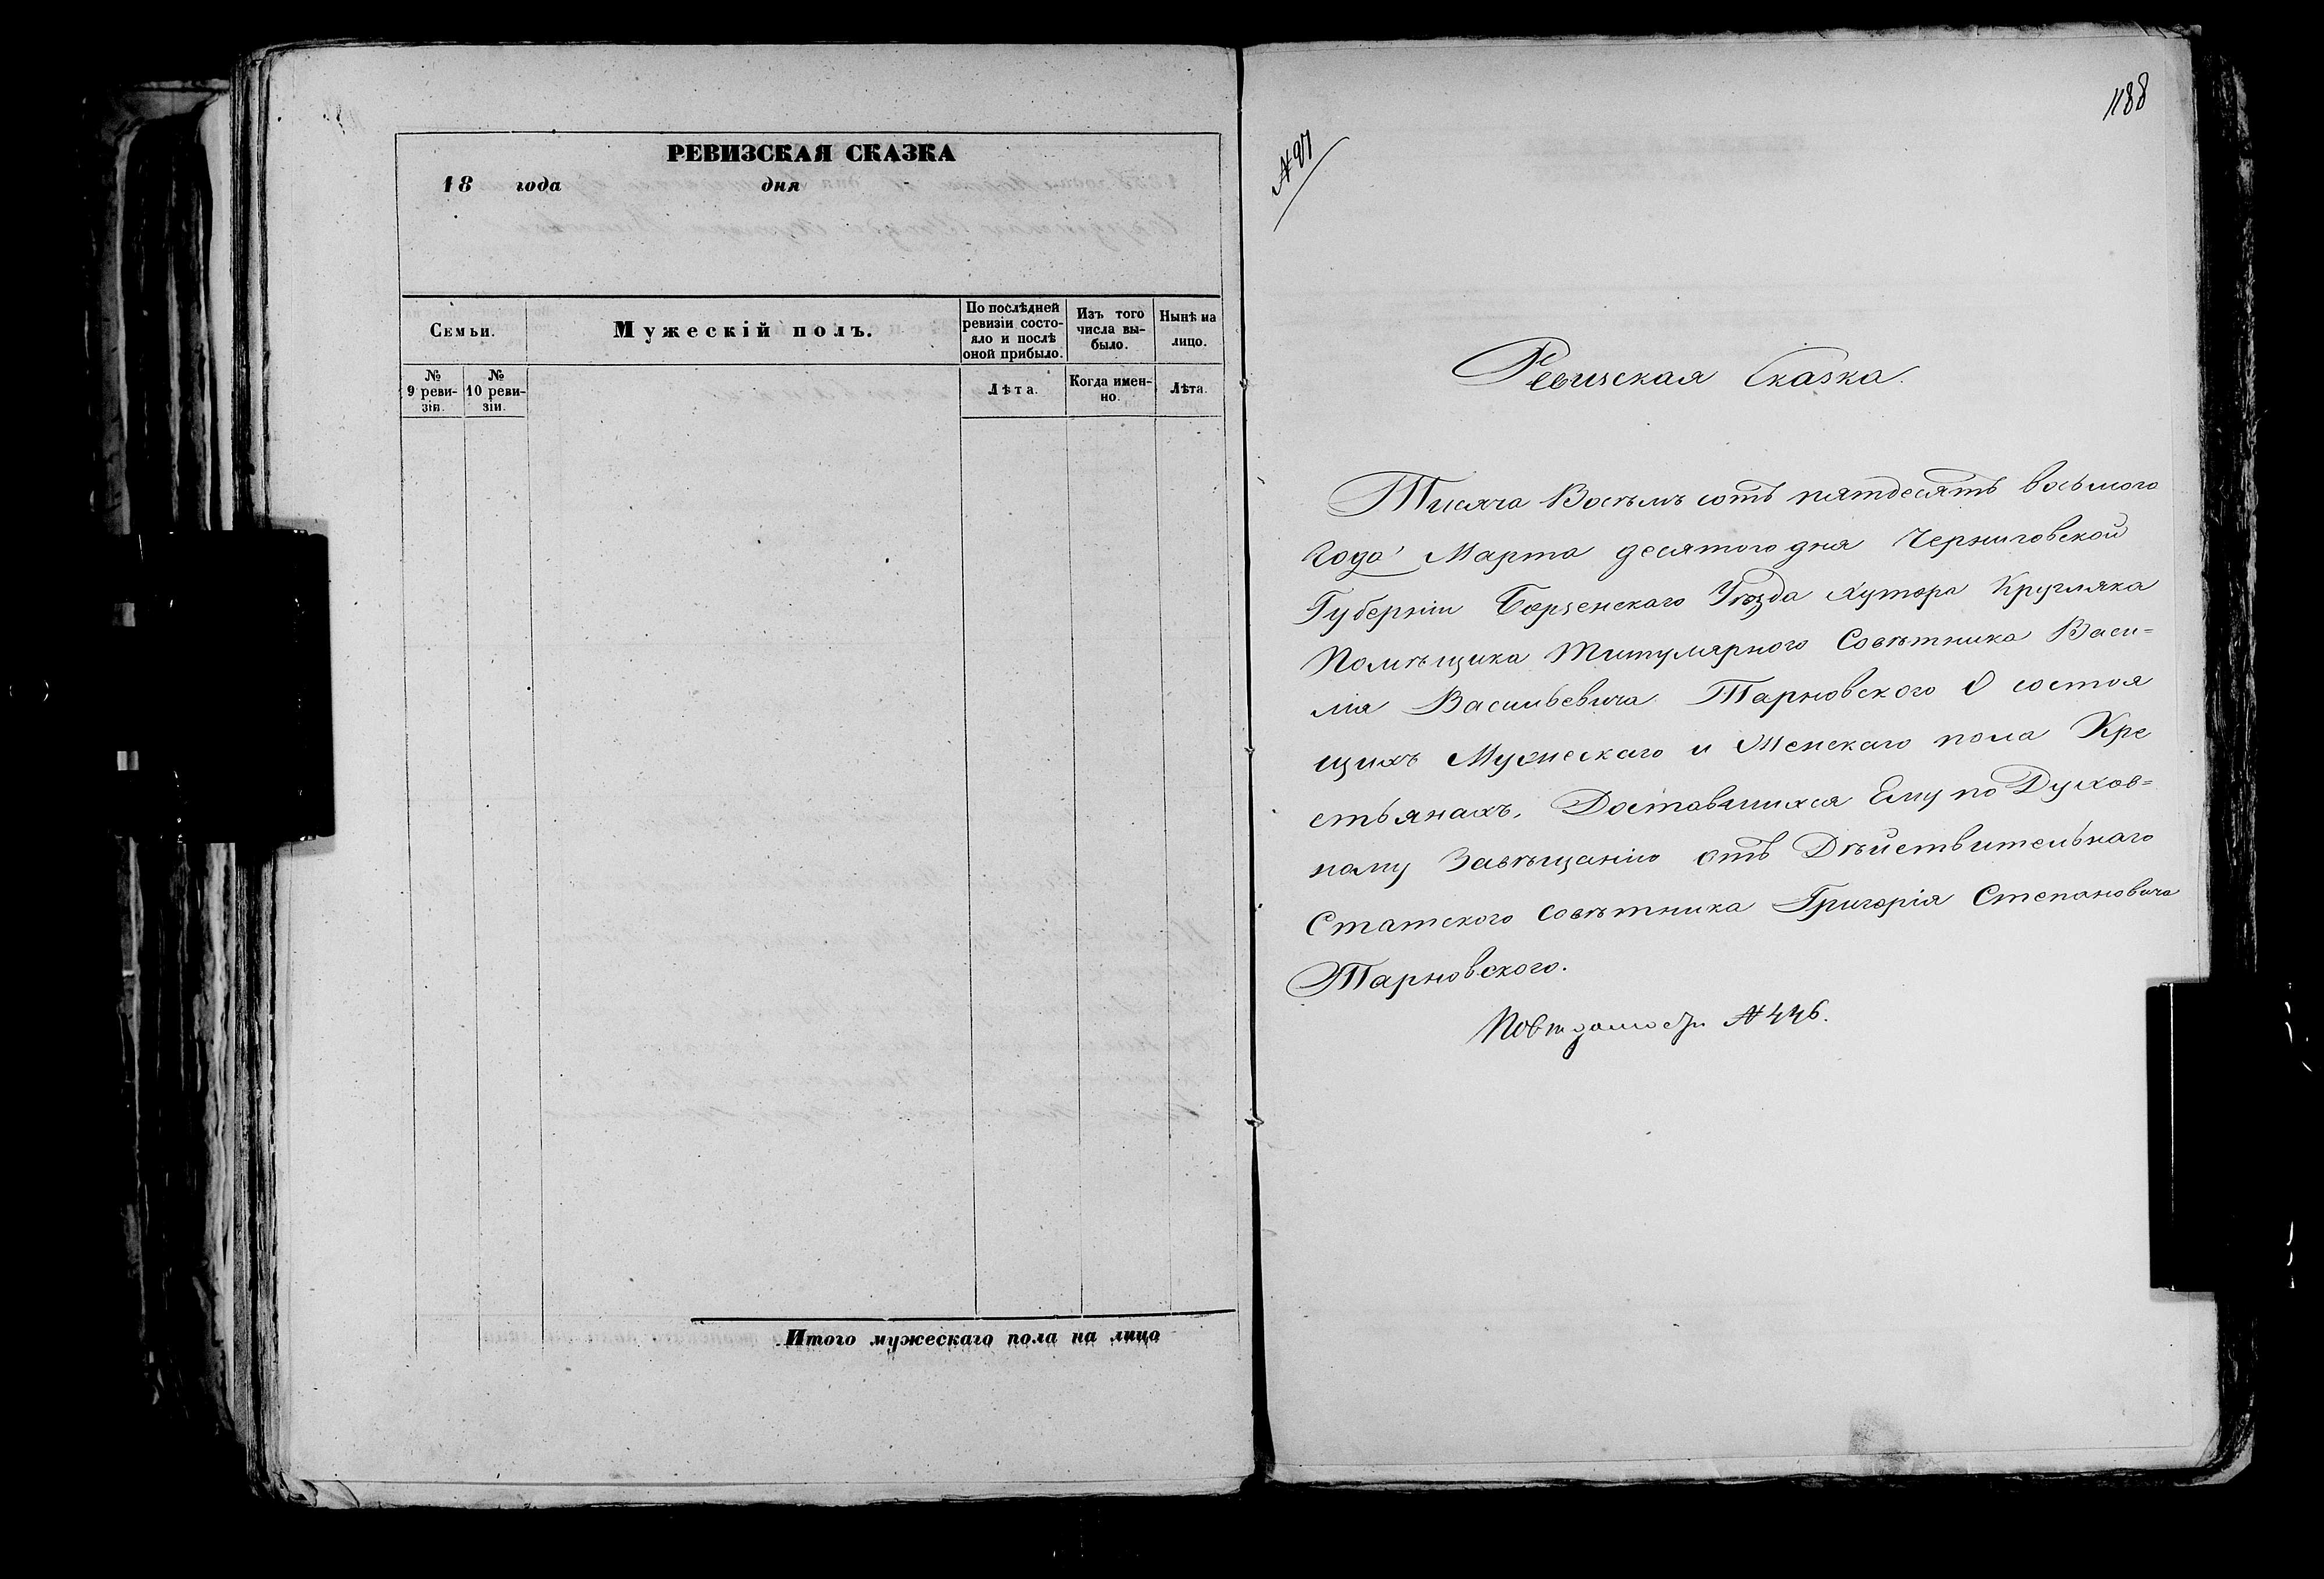 РЕВИЗСКАЯ СКАЗКА
18 года дня
Семьи.
Мужескій полъ.
По послѣдней
ревизіи состо-
яло и послѣ
оной прибыло.
Изъ того
числа вы-
было.
Нынѣ на
лицо.
№
9 реви-
зіи.
№
10 реви-
зіи.
Лѣта.
Когда имен-
но.
Лѣта.
Итого мужескаго пола на лицо
1188
Ревизская Сказка.
Тисяча Восѣмъ сотъ пятдесятъ восьмого
Года Марта десятого дня Черниговской
Губерніи Борзенскаго Уѣзда Хутора Кругляка
Помѣщика Титулярного Совѣтника Васи=
лія Васильевича Тарновского О состоя
щихъ Мужескаго и Женскаго пола Кре
стьянахъ, Доставшихся Ему по Духов=
ному Завѣщанію отъ Дѣйствительнаго
Статского совѣтника Григорія Степановича
Тарновского.
№ 446.